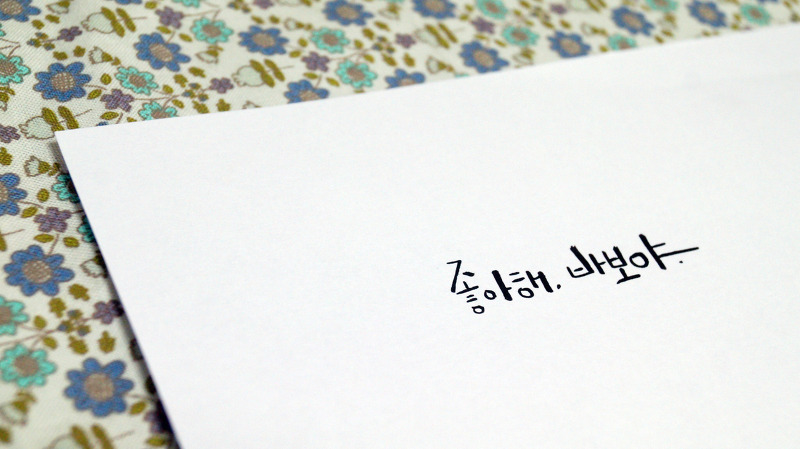 좋아해. 바보야.